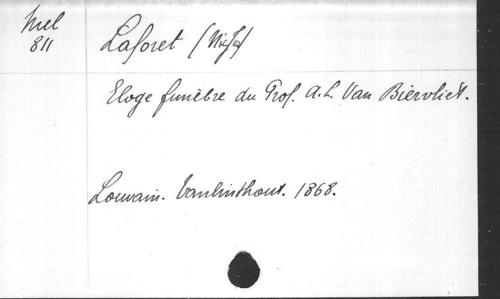 Mel
811
Laforet (Nic. J.)
Eloge funèbre du Prof. A. L. Van Biervliet.
Louvain. Vanlinthout. 1868.